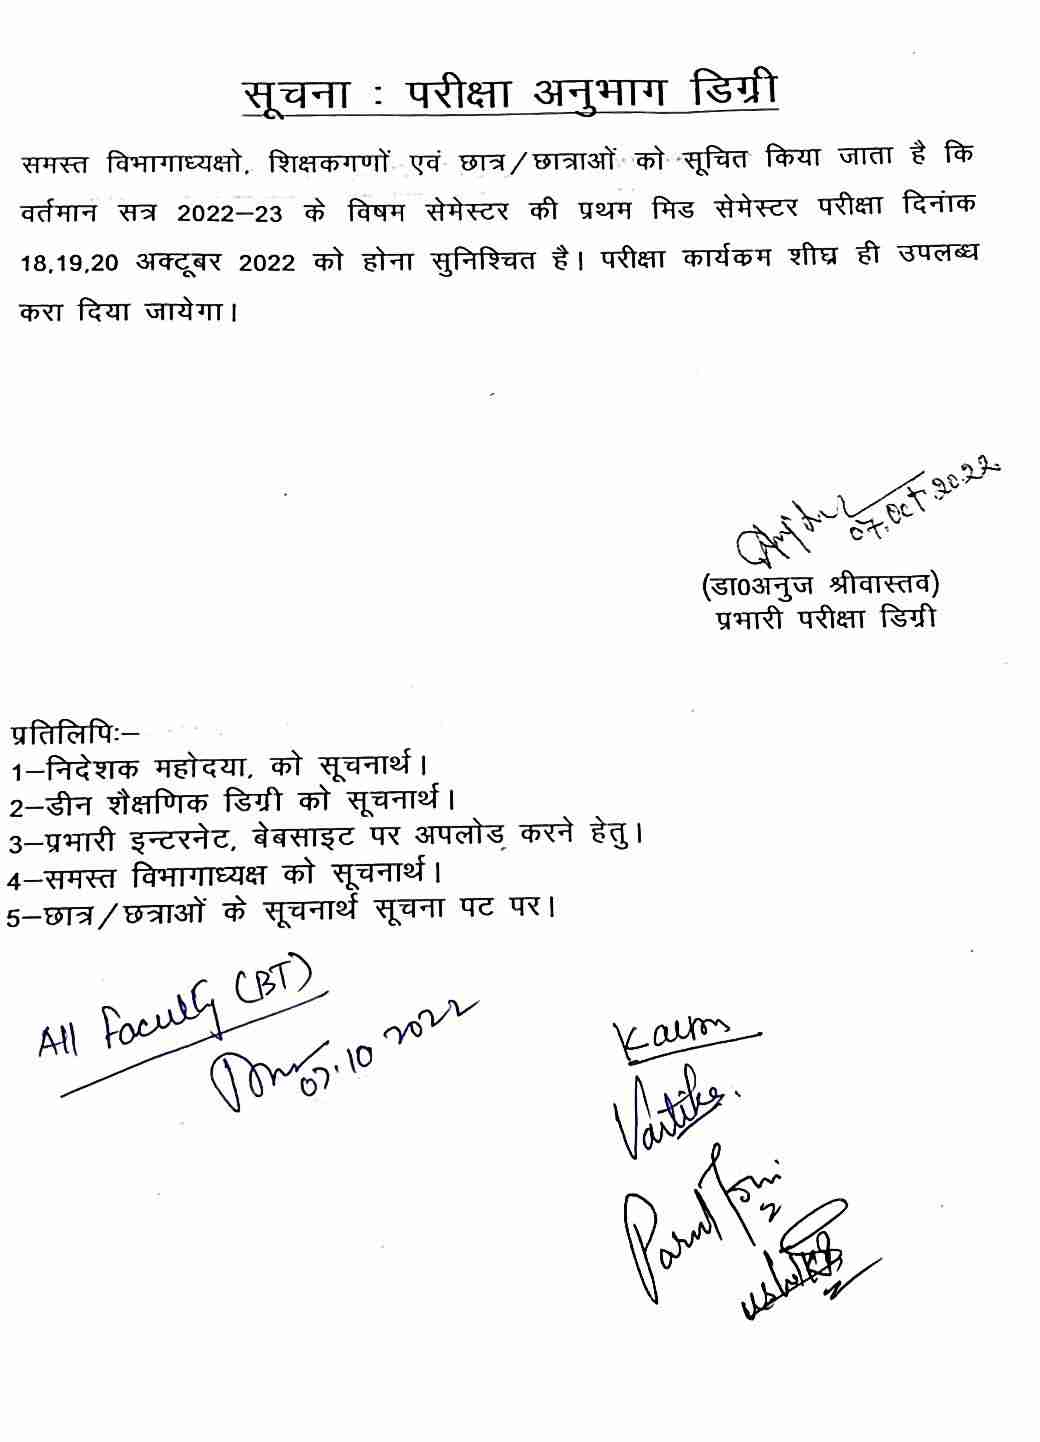 सूचना : परीक्षा अनुभाग डिग्री
समस्त विभागाध्यक्षो, शिक्षकगणों एवं छात्र/छात्राओं को सूचित किया जाता है कि
वर्तमान सत्र 2022–23 के विषम सेमेस्टर की प्रथम मिड सेमेस्टर परीक्षा दिनांक
18,19,20 अक्टूबर 2022 को होना सुनिश्चित है। परीक्षा कार्यकम शीघ्र ही उपलब्ध
करा दिया जायेगा।
07.Oct.2022
(डा0अनुज श्रीवास्तव)
प्रभारी परीक्षा डिग्री
प्रतिलिपिः–
1–निदेशक महोदया, को सूचनार्थ।
2–डीन शैक्षणिक डिग्री को सूचनार्थ।
3–प्रभारी इन्टरनेट, बेबसाइट पर अपलोड करने हेतु।
4–समस्त विभागाध्यक्ष को सूचनार्थ।
5–छात्र/छत्राओं के सूचनार्थ सूचना पट पर।
All Faculty (BT)
07.10 2022
Vartika.
Parul